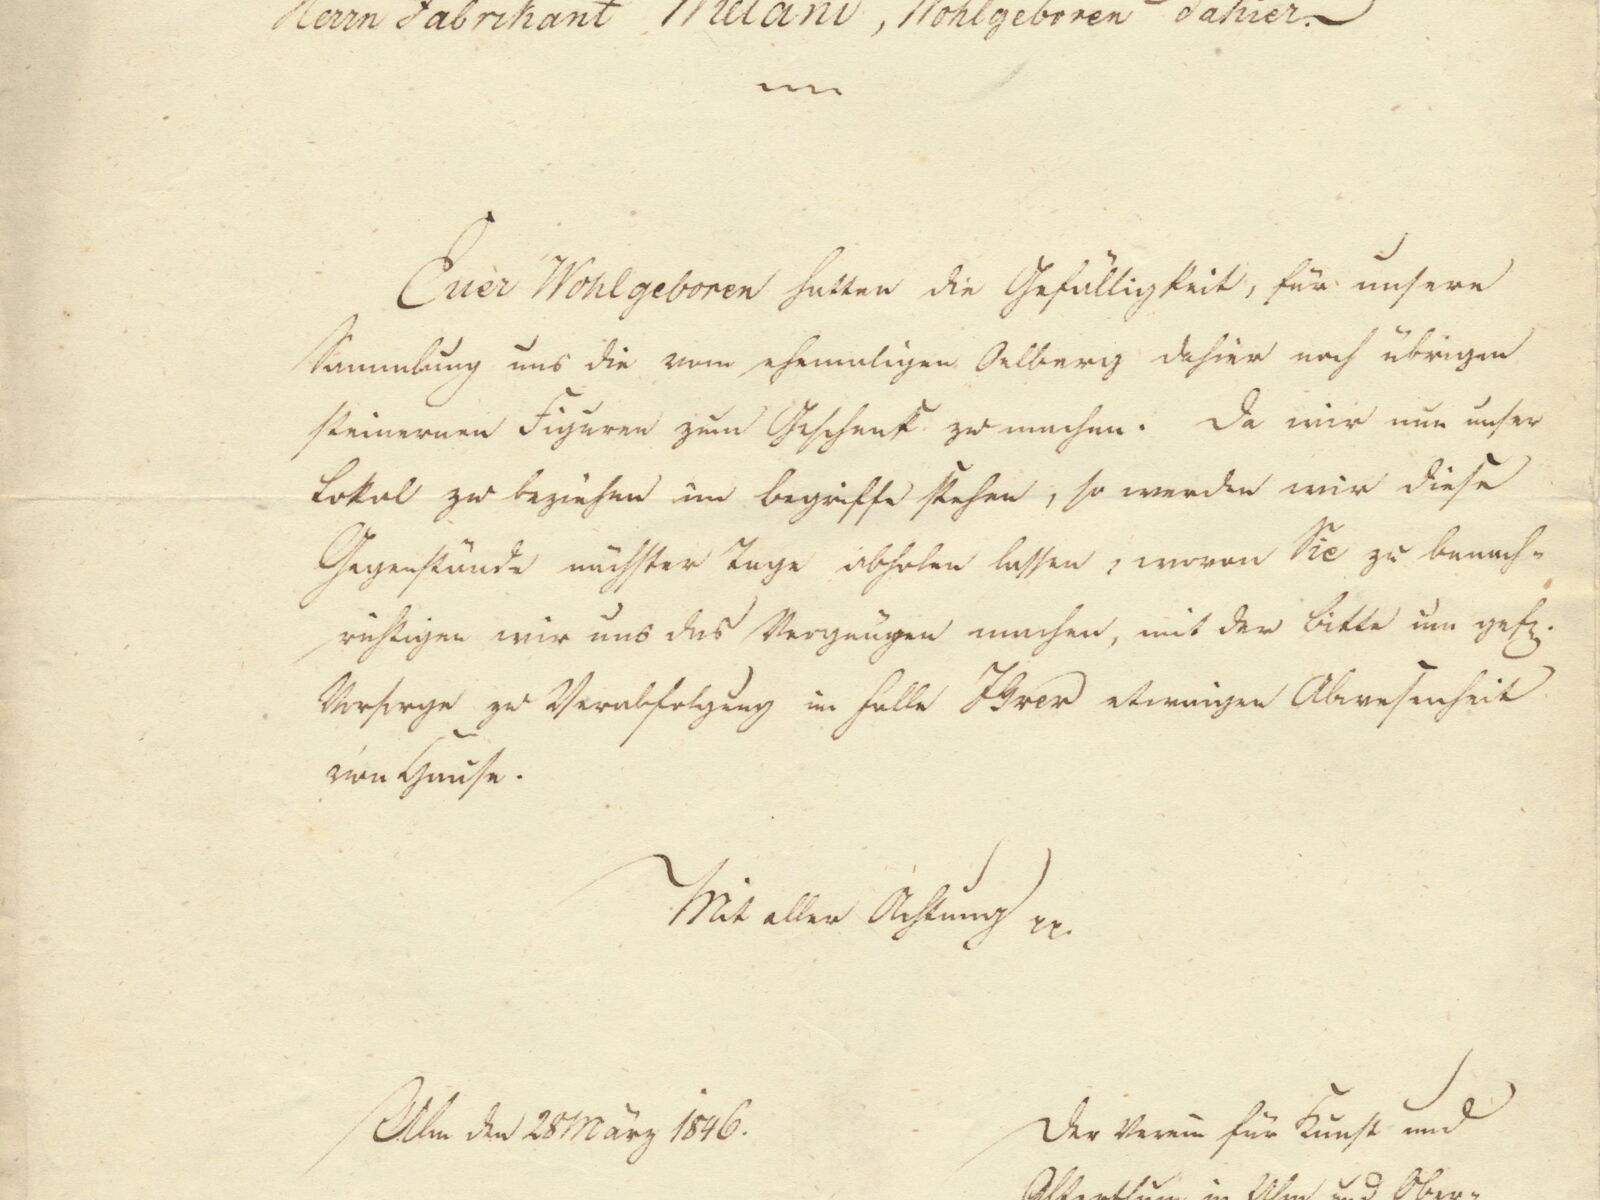 Herrn Fabrikant Mitani, Wohlgeboren dahier.
Euer Wohlgeboren hatten die Gefälligkeit, für unsere
Sammlung uns die vom ehemaligen Oelberg dahier noch übrigen
steinernen Figuren zum Geschenk zu machen. Da wir nun unser
Lokal zu beziehen im Begriffe stehen, so werden wir diese
Gegenstände nächster Tage abholen lassen, wovon Sie zu benach-
richtigen wir uns das Vergnügen machen, mit der Bitte um gef.
Vorsorge zu Verabfolgung im Falle Ihrer etwaigen Abwesenheit
von Hause.
Mit aller Achtung
Ulm den 28 März 1846.
Der Verein für Kunst und
Alterthum in Ulm und Ober-